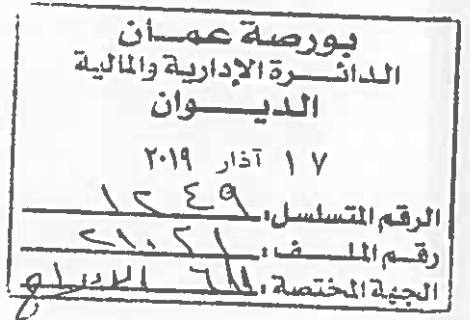 بورصة عمان
الدائرة الإدارية والمالية
الديوان
١٧ آذار ٢٠١٩
الرقم المتسلسل: ١٢٤٩
رقم الملف: ٢١٠٢١
الجهة المختصة: الإدراج